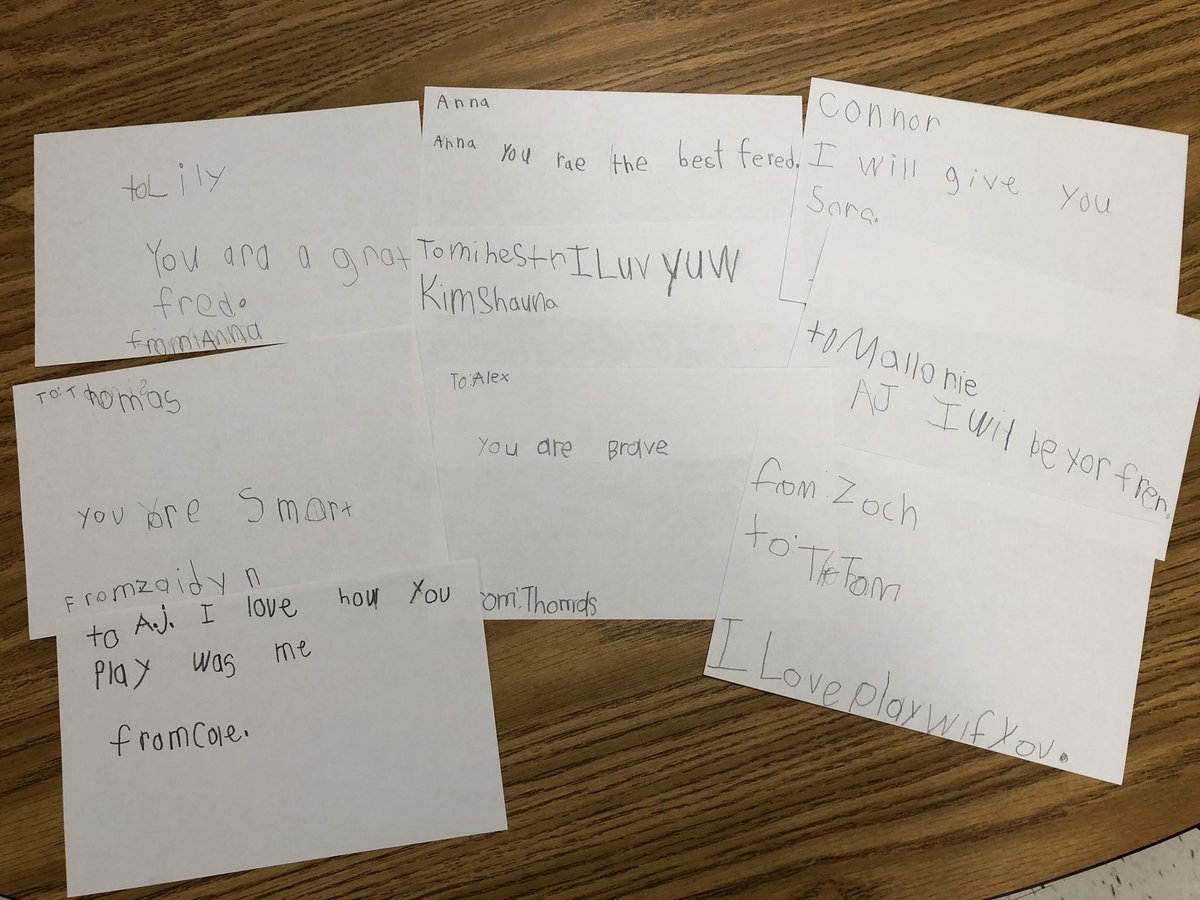 toLily
You ara a grat
fred.
from:Anna
Anna
Anna You rae the best fered.
Connor
I will give you
Sara.
TomihestrILuvyuw
Kimshauna
toMallonie
AJ I Wil be yor fren.
To:Thomas
you are Smart
Fromzaidyn
To:Alex
you are Brave
om:Thomas
from:Zoch
to:
I LoveplaywifYou.
to A.J. I love how You
Play was me
fromCole.